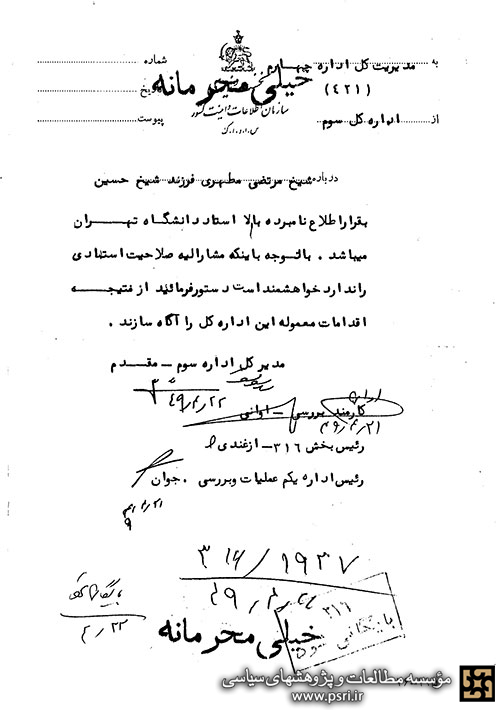 به مدیریت کل اداره چهارم شماره
(۴۲۱) خیلی محرمانه تاریخ
سازمان اطلاعات و امنیت کشور
از اداره کل سوم پیوست
س.ا.و.ا.ک
درباره شیخ مرتضی مطهری فرزند شیخ حسین
بقرار اطلاع نامبرده بالا استاد دانشگاه تهران
میباشد . باتوجه باینکه مشارالیه صلاحیت استادی
را ندارد خواهشمند است دستور فرمائید از نتیجه
اقدامات معموله این اداره کل را آگاه سازند .
مدیر کل اداره سوم – مقدم
۴۹/۴/۲۲
کارمند بررسی – اوانی
۴۹/۴/۲۱
رئیس بخش ۳۱۶ – ازغندی
رئیس اداره یکم عملیات و بررسی . جوان
۳۱۶/۱۹۳۷
بایگانی
۴/۲۳
۳۱۶
بایگانی
خیلی محرمانه
مؤسسه مطالعات و پژوهشهای سیاسی
www.psri.ir